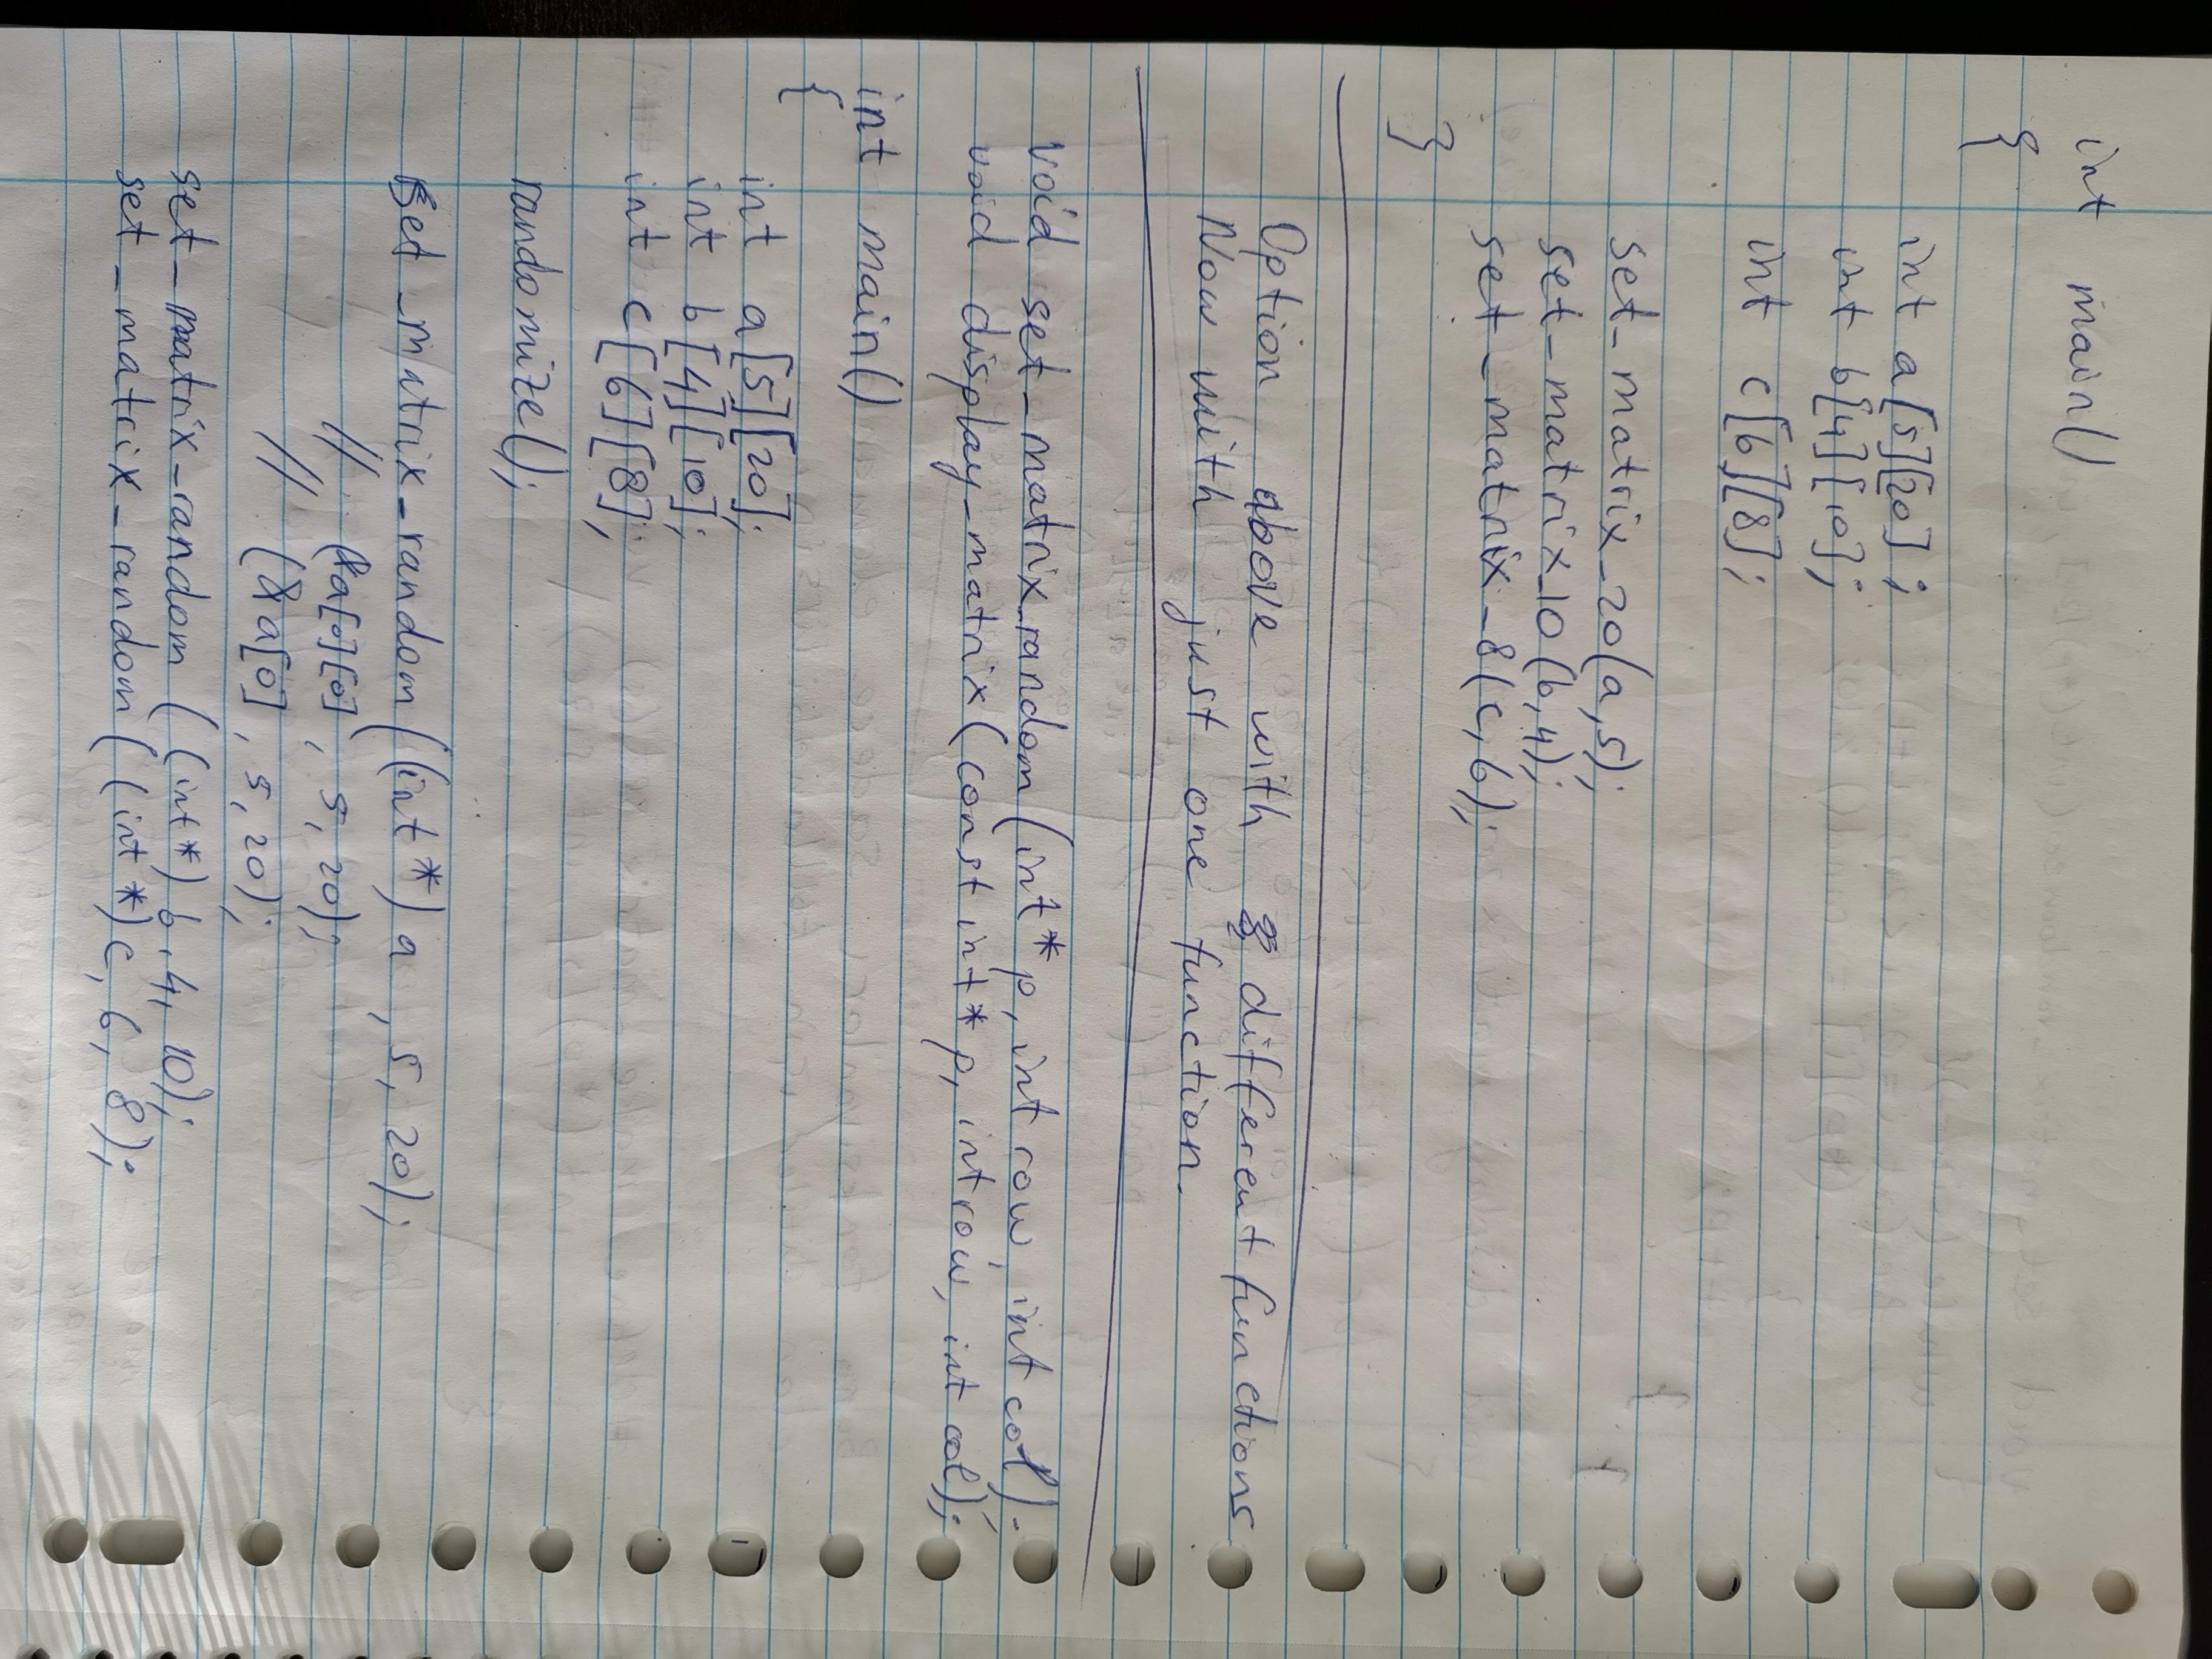 int main()
{
int a[5][20];
int b[4][10];
int c[6][8];
set_matrix_20(a,5);
set_matrix_10(b,4);
set_matrix_8(c,6);
}
Option above with different functions
Now with just one function.
void set_matrix_random(int* p, int row, int col);
void display_matrix(const int* p, int row, int col);
int main()
{
int a[5][20];
int b[4][10];
int c[6][8];
randomize();
set_matrix_random((int*) a, 5, 20);
// (&a[0][0], 5, 20);
// (&a[0], 5, 20);
set_matrix_random((int*) b, 4, 10);
set_matrix_random((int*) c, 6, 8);